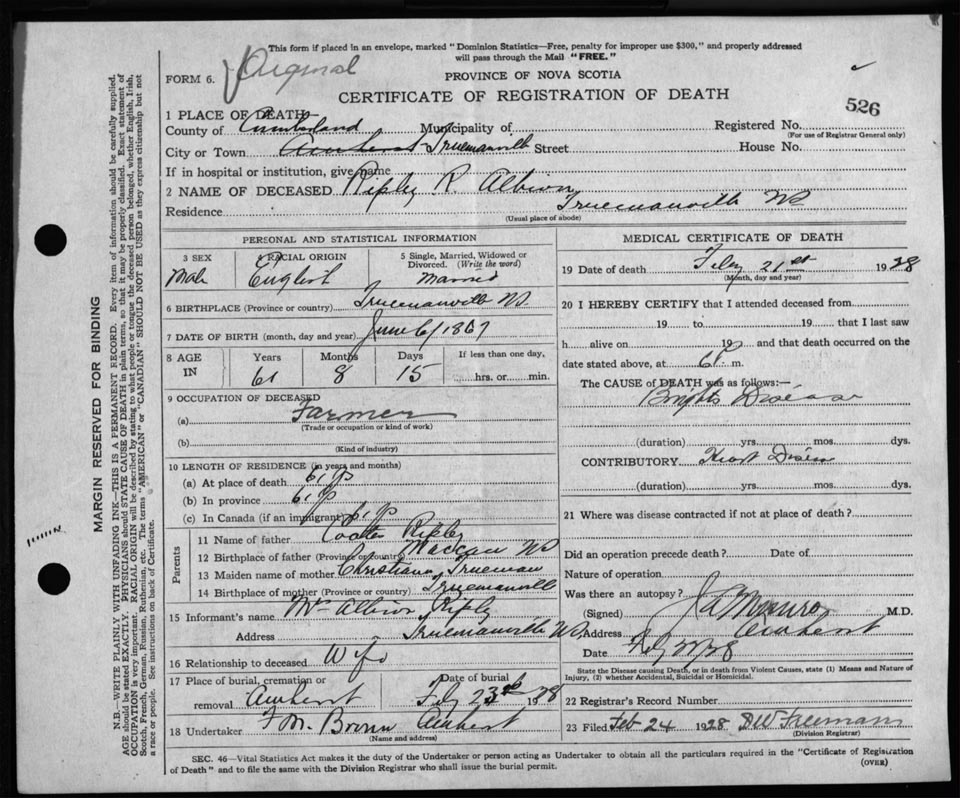 This form if placed in an envelope, marked "Dominion Statistics—Free, penalty for improper use $300," and properly addressed
will pass through the Mail "FREE."
FORM 6. Original
PROVINCE OF NOVA SCOTIA
CERTIFICATE OF REGISTRATION OF DEATH
526
1 PLACE OF DEATH
County of Cumberland Municipality of Registered No.
(For use of Registrar General only)
City or Town Amherst Truemanville Street House No.
If in hospital or institution, give name
2 NAME OF DECEASED Ripley R. Albion
Residence Truemanville NS
(Usual place of abode)
PERSONAL AND STATISTICAL INFORMATION
3 SEX 4 RACIAL ORIGIN 5 Single, Married, Widowed or
Divorced. (Write the word)
Male English Married
6 BIRTHPLACE (Province or country) Truemanville NS
7 DATE OF BIRTH (month, day and year) June 6/1867
8 AGE IN Years Months Days If less than one day,
61 8 15 hrs. or min.
9 OCCUPATION OF DECEASED
(a) Farmer
(Trade or occupation or kind of work)
(b)
(Kind of industry)
10 LENGTH OF RESIDENCE (in years and months)
(a) At place of death 61 yrs
(b) In province 61 yrs
(c) In Canada (if an immigrant) 61 yrs
Parents
11 Name of father Coates Ripley
12 Birthplace of father (Province or country) Maccan NS
13 Maiden name of mother Christiann Trueman
14 Birthplace of mother (Province or country) Truemanville
15 Informant's name Mrs Albion Ripley
Address Truemanville NS
16 Relationship to deceased Wife
17 Place of burial, cremation or Date of burial
removal Amherst Feby 23rd 1928
18 Undertaker F M. Brown Amherst
(Name and address)
MEDICAL CERTIFICATE OF DEATH
19 Date of death Feby 21st 1928
(Month, day and year)
20 I HEREBY CERTIFY that I attended deceased from
19 to 19 that I last saw
h alive on 19 and that death occurred on the
date stated above, at 6 P m.
The CAUSE of DEATH was as follows:—
Brights Disease
(duration) yrs. mos. dys.
CONTRIBUTORY Heart Disease
(duration) yrs. mos. dys.
21 Where was disease contracted if not at place of death?
Did an operation precede death? Date of
Nature of operation
Was there an autopsy?
(Signed) J A Munro M.D.
Address Amherst
Date Feby 22/28
State the Disease causing Death, or in death from Violent Causes, state (1) Means and Nature of
Injury, (2) whether Accidental, Suicidal or Homicidal.
22 Registrar's Record Number
23 Filed Feb 24 1928 D W Freeman
(Division Registrar)
SEC. 46—Vital Statistics Act makes it the duty of the Undertaker or person acting as Undertaker to obtain all the particulars required in the "Certificate of Registration
of Death" and to file the same with the Division Registrar who shall issue the burial permit. (OVER)
MARGIN RESERVED FOR BINDING
N.B.—WRITE PLAINLY WITH UNFADING INK—THIS IS A PERMANENT RECORD. Every item of information should be carefully supplied.
AGE should be stated EXACTLY. PHYSICIANS should STATE CAUSE OF DEATH in plain terms, so that it may be properly classified. Exact statement of
OCCUPATION is very important. RACIAL ORIGIN will be described by stating to what people or tongue the deceased person belonged, whether English, Irish,
Scotch, French, German, Russian, Ruthenian, etc. The terms "AMERICAN" or "CANADIAN" SHOULD NOT BE USED as they express citizenship but not
a race or people. See instructions on back of Certificate.